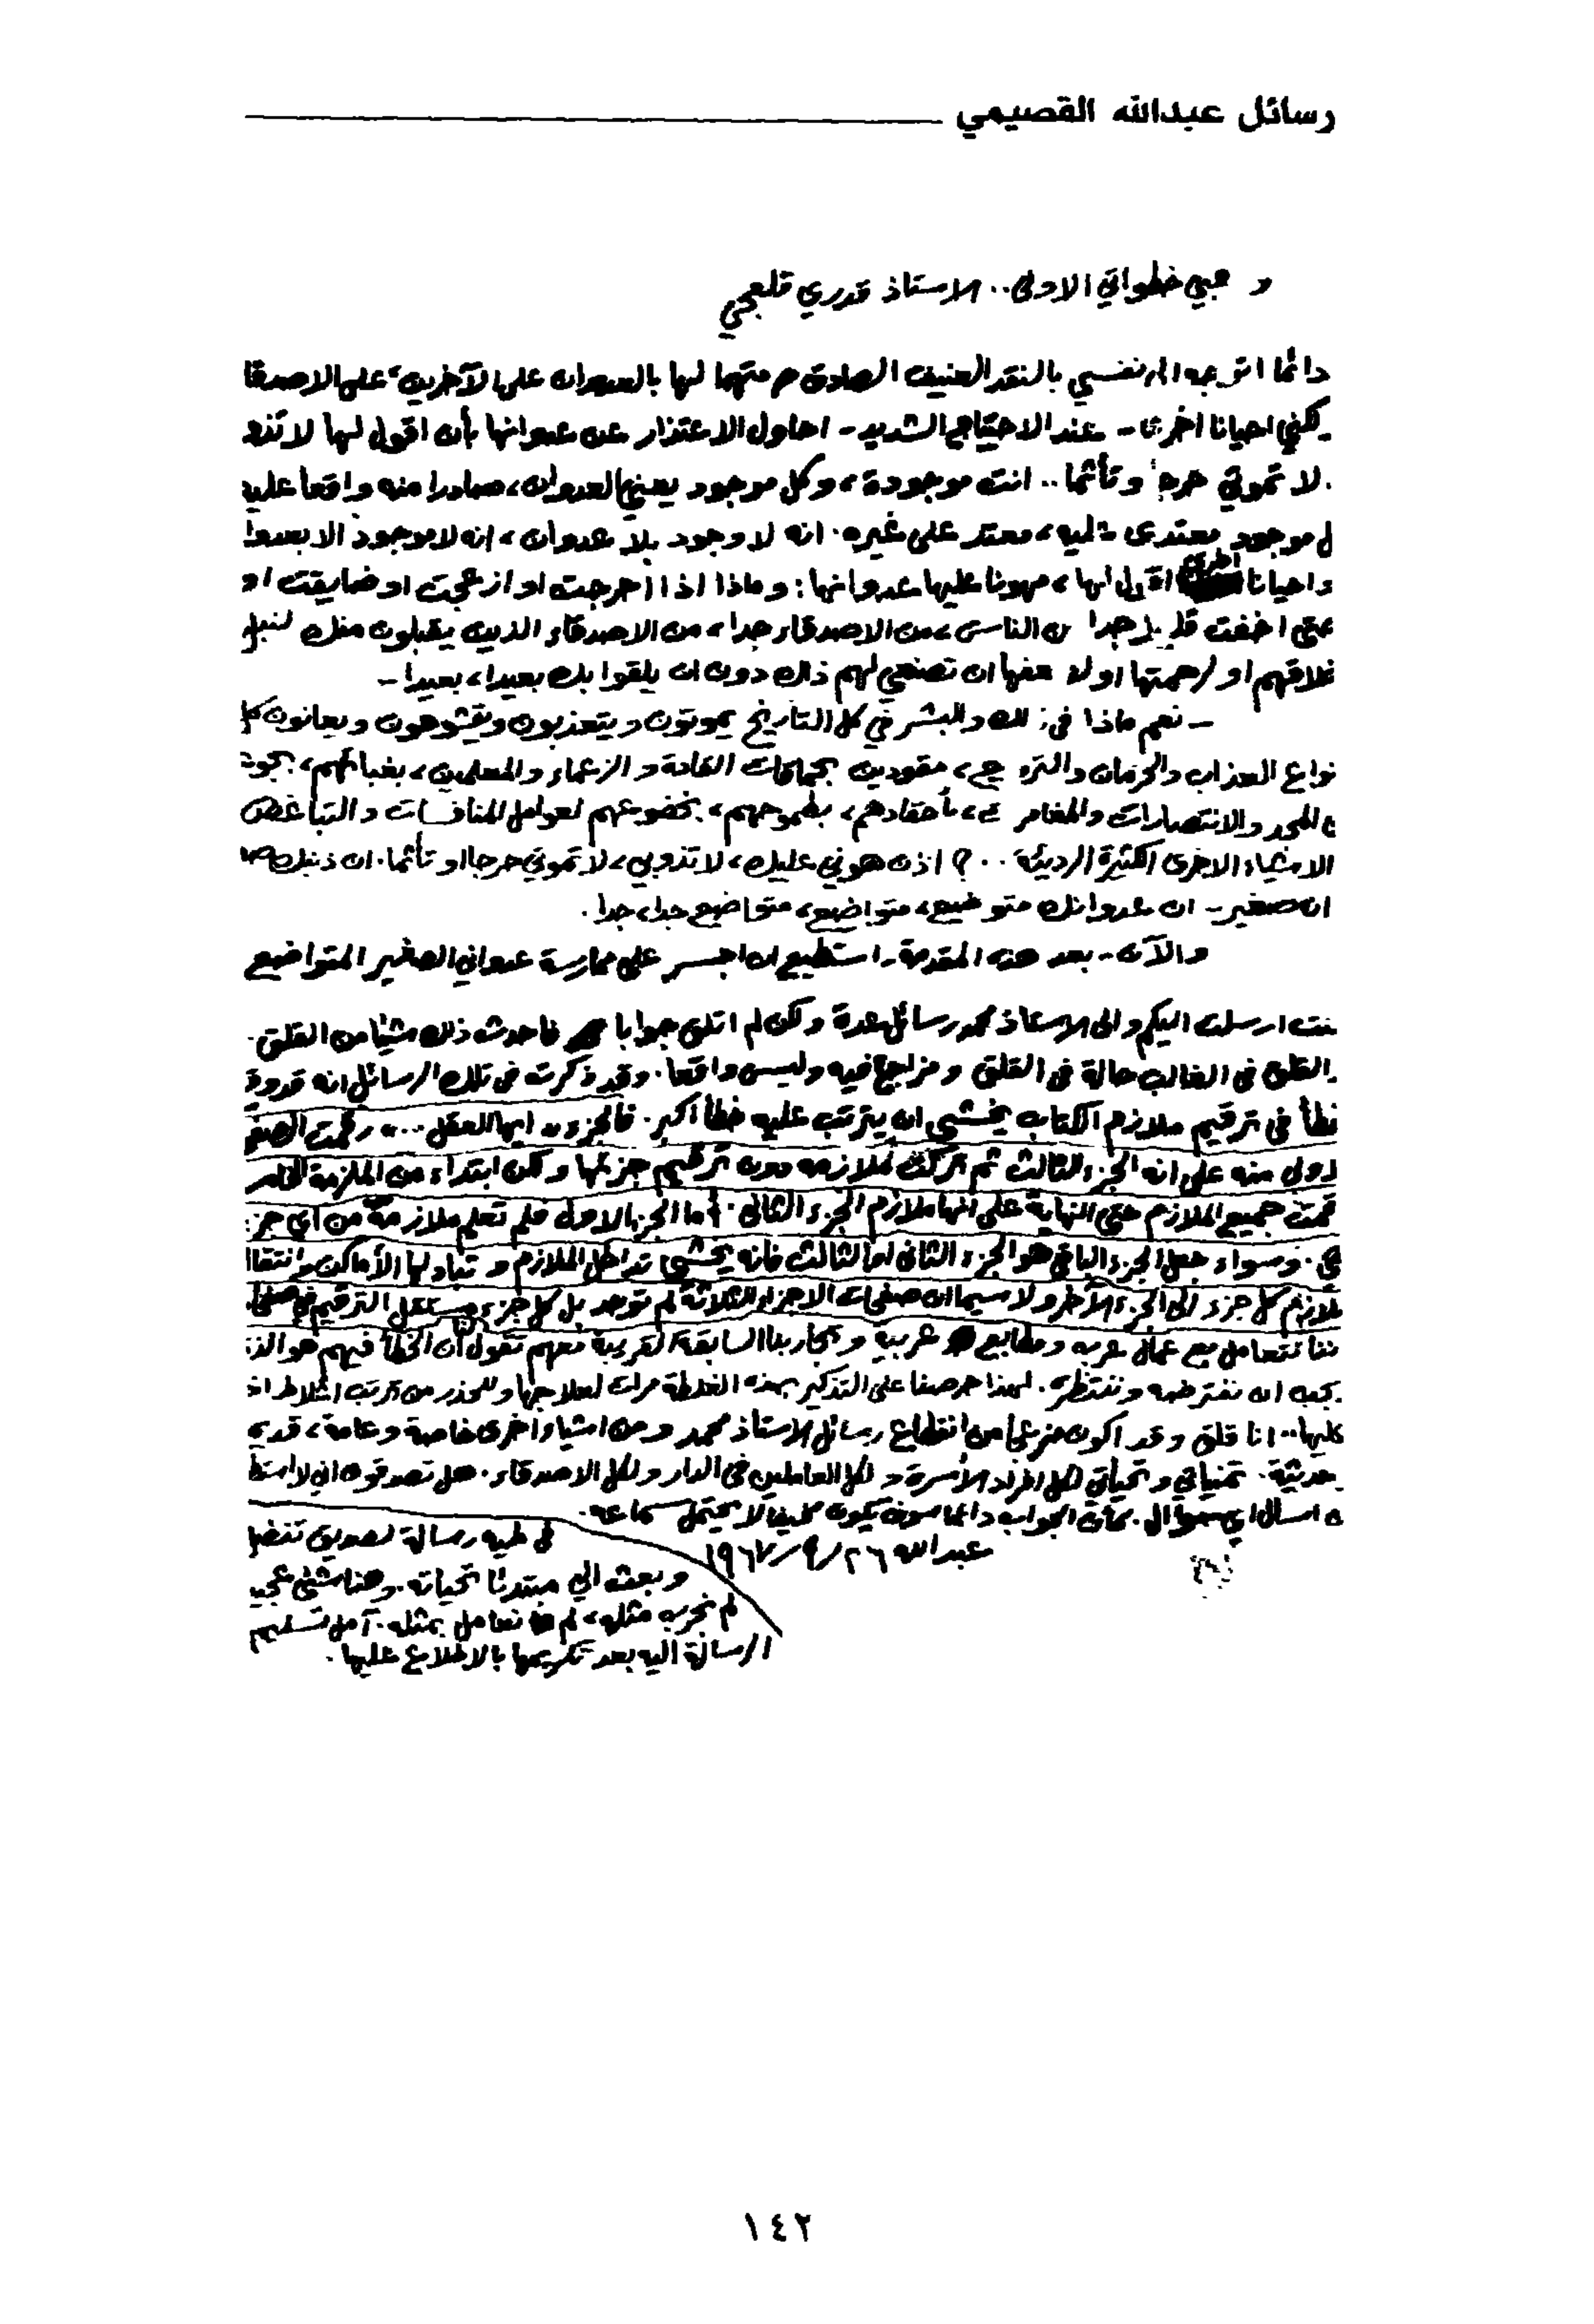 رسائل عبدالله القصيمي
خطواتي الاولى.. الاستاذ قدري قلعجي
دائما اتوجه الى نفسي بالنقد العنيف الصادق متهما لها بالعدوان على الآخرين، على الاصدقا
لكني احيانا اخرى - عند الاحتياج الشديد - احاول الاعتذار عن عدوانها بأن اقول لها لا
لا تموتي حرجا وتأثما.. انت موجودة، وكل موجود يعني العدوان، صادرا منه واقعا عليه
ل موجود معتدى عليه، معتد على غيره. انه لا وجود بلا عدوان، انه لا موجود الا
واحيانا اخرى اقول لها، مهونا عليها عدوانها: وماذا اذا احرجت او ازعجت او ضايقت او
حتى اخفت قليلا جدا من الناس، من الاصدقاء جدا، من الاصدقاء الذين يقبلون منك لنبل
خلاقهم او لرحمتها او لا ان تصنعي لهم ذلك دون ان يلقوا بك بعيدا، بعيدا -
- نعم ماذا في ذلك والبشر في كل التاريخ يموتون ويتعذبون ويتشوهون ويعانون كل
نواع العذاب والحرمان والترويع، مقودين بحماقات القادة والزعماء والمعلمين، بغبائهم،
المجد والانتصارات والمغامرة، بأحقادهم، بطموحهم، بخضوعهم لعوامل المنافسات والتباغض
الاشياء الاخرى الكثيرة الرديئة ..؟ اذن هوني عليك، لا تذوبي، لا تموتي حرجا او تأثما. ان ذنبك
ان صغير - ان عدوانك متواضع، متواضع، متواضع جدا، جدا.
والآن - بعد هذه المقدمة - استطيع ان اجسر على ممارسة عدواني الصغير المتواضع
نت ارسلت اليكم والى الاستاذ محمد رسائل عدة ولكن لم اتلق جوابا فاحدث ذلك شيئا من القلق.
القلق في الغالب حالة في القلق ومزاج فيه وليس واقعا. وقد ذكرت في تلك الرسائل انه قد وقع
خطأ في ترقيم ملازم الكتاب يخشى ان يترتب عليه خطأ اكبر. فالجزء ايها العقل ... رقمت
لاولى منه على انه الجزء الثالث ثم تركت ملازمه دون ترقيم جزئها ولكن ابتداء من الملزمة
قمت جميع الملازم حتى النهاية على انها ملازم الجزء الثاني. أما الجزء الاول فلم تعلم ملازمه من اي جزء
هي. وسواء جعل الجزء الباقي هو الجزء الثاني او الثالث فانه يخشى تداخل الملازم وتبادلها الأماكن وانتقا
ملازم كل جزء الى الجزء الآخر ولا سيما ان صفحات الاجزاء الثلاثة لم توحد بل كل جزء مستقل الترقيم في
ننا نتعامل مع عمال عرب ومطابع عربية وتجاربنا السابقة القريبة معهم تقول لنا ان الخطأ فيهم هو الذ
يجب ان نفترضه وننتظره. لهذا حرصنا على التذكير بهذه الغلطة مرات لعلاجها وللحذر من ترتب
عليها.. انا قلق وقد اكون منزعجا من انقطاع رسائل الاستاذ محمد ومن اشياء اخرى خاصة وعامة،
تمنياتي وتحياتي لكل افراد الأسرة ولكل العاملين في الدار ولكل الاصدقاء. هل تصدقون اني لا
اسأل اي سؤال. كأن الجواب دائما سوف يكون لا يحتمل سماعه.
عبدالله ٢٦/٩/١٩٦٧
في طيه رسالة لصديق تفضل
وبعث الي مبتدئا تحياته. وهذا شيء عجيب
لم نجرب مثله، لم نعامل بمثله. آمل تسليم
الرسالة اليه بعد تكريمها بالاطلاع عليها.
١٤٢